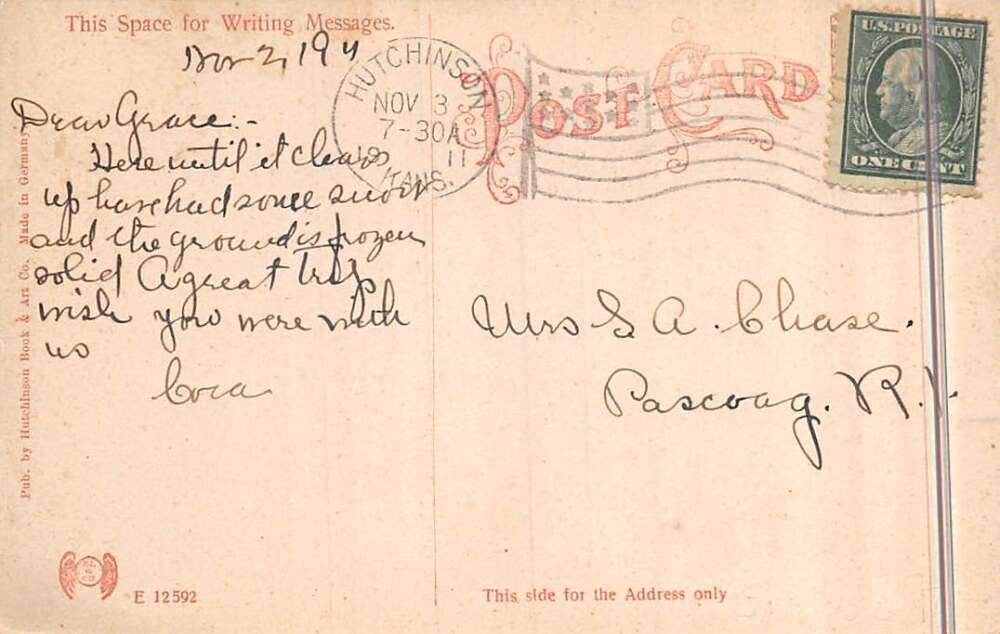 This Space for Writing Messages.
Nov 2, 1911
Dear Grace:-
Here until it clears
up have had some snow
and the ground is frozen
solid A great trip
wish you were with
us
Cora
HUTCHINSON
NOV 3
7-30A
19 11
KANS.
POST CARD
U.S. POSTAGE
ONE CENT
Mrs G. A. Chase.
Pascoag. R. I.
Pub. by Hutchinson Book & Art Co. Made in Germany
E 12592
This side for the Address only